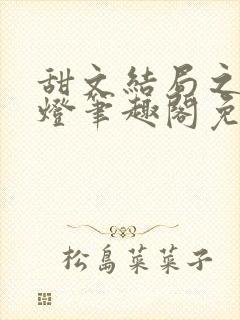 甜文結局之
燈筆趣閣免
松島菜菜子